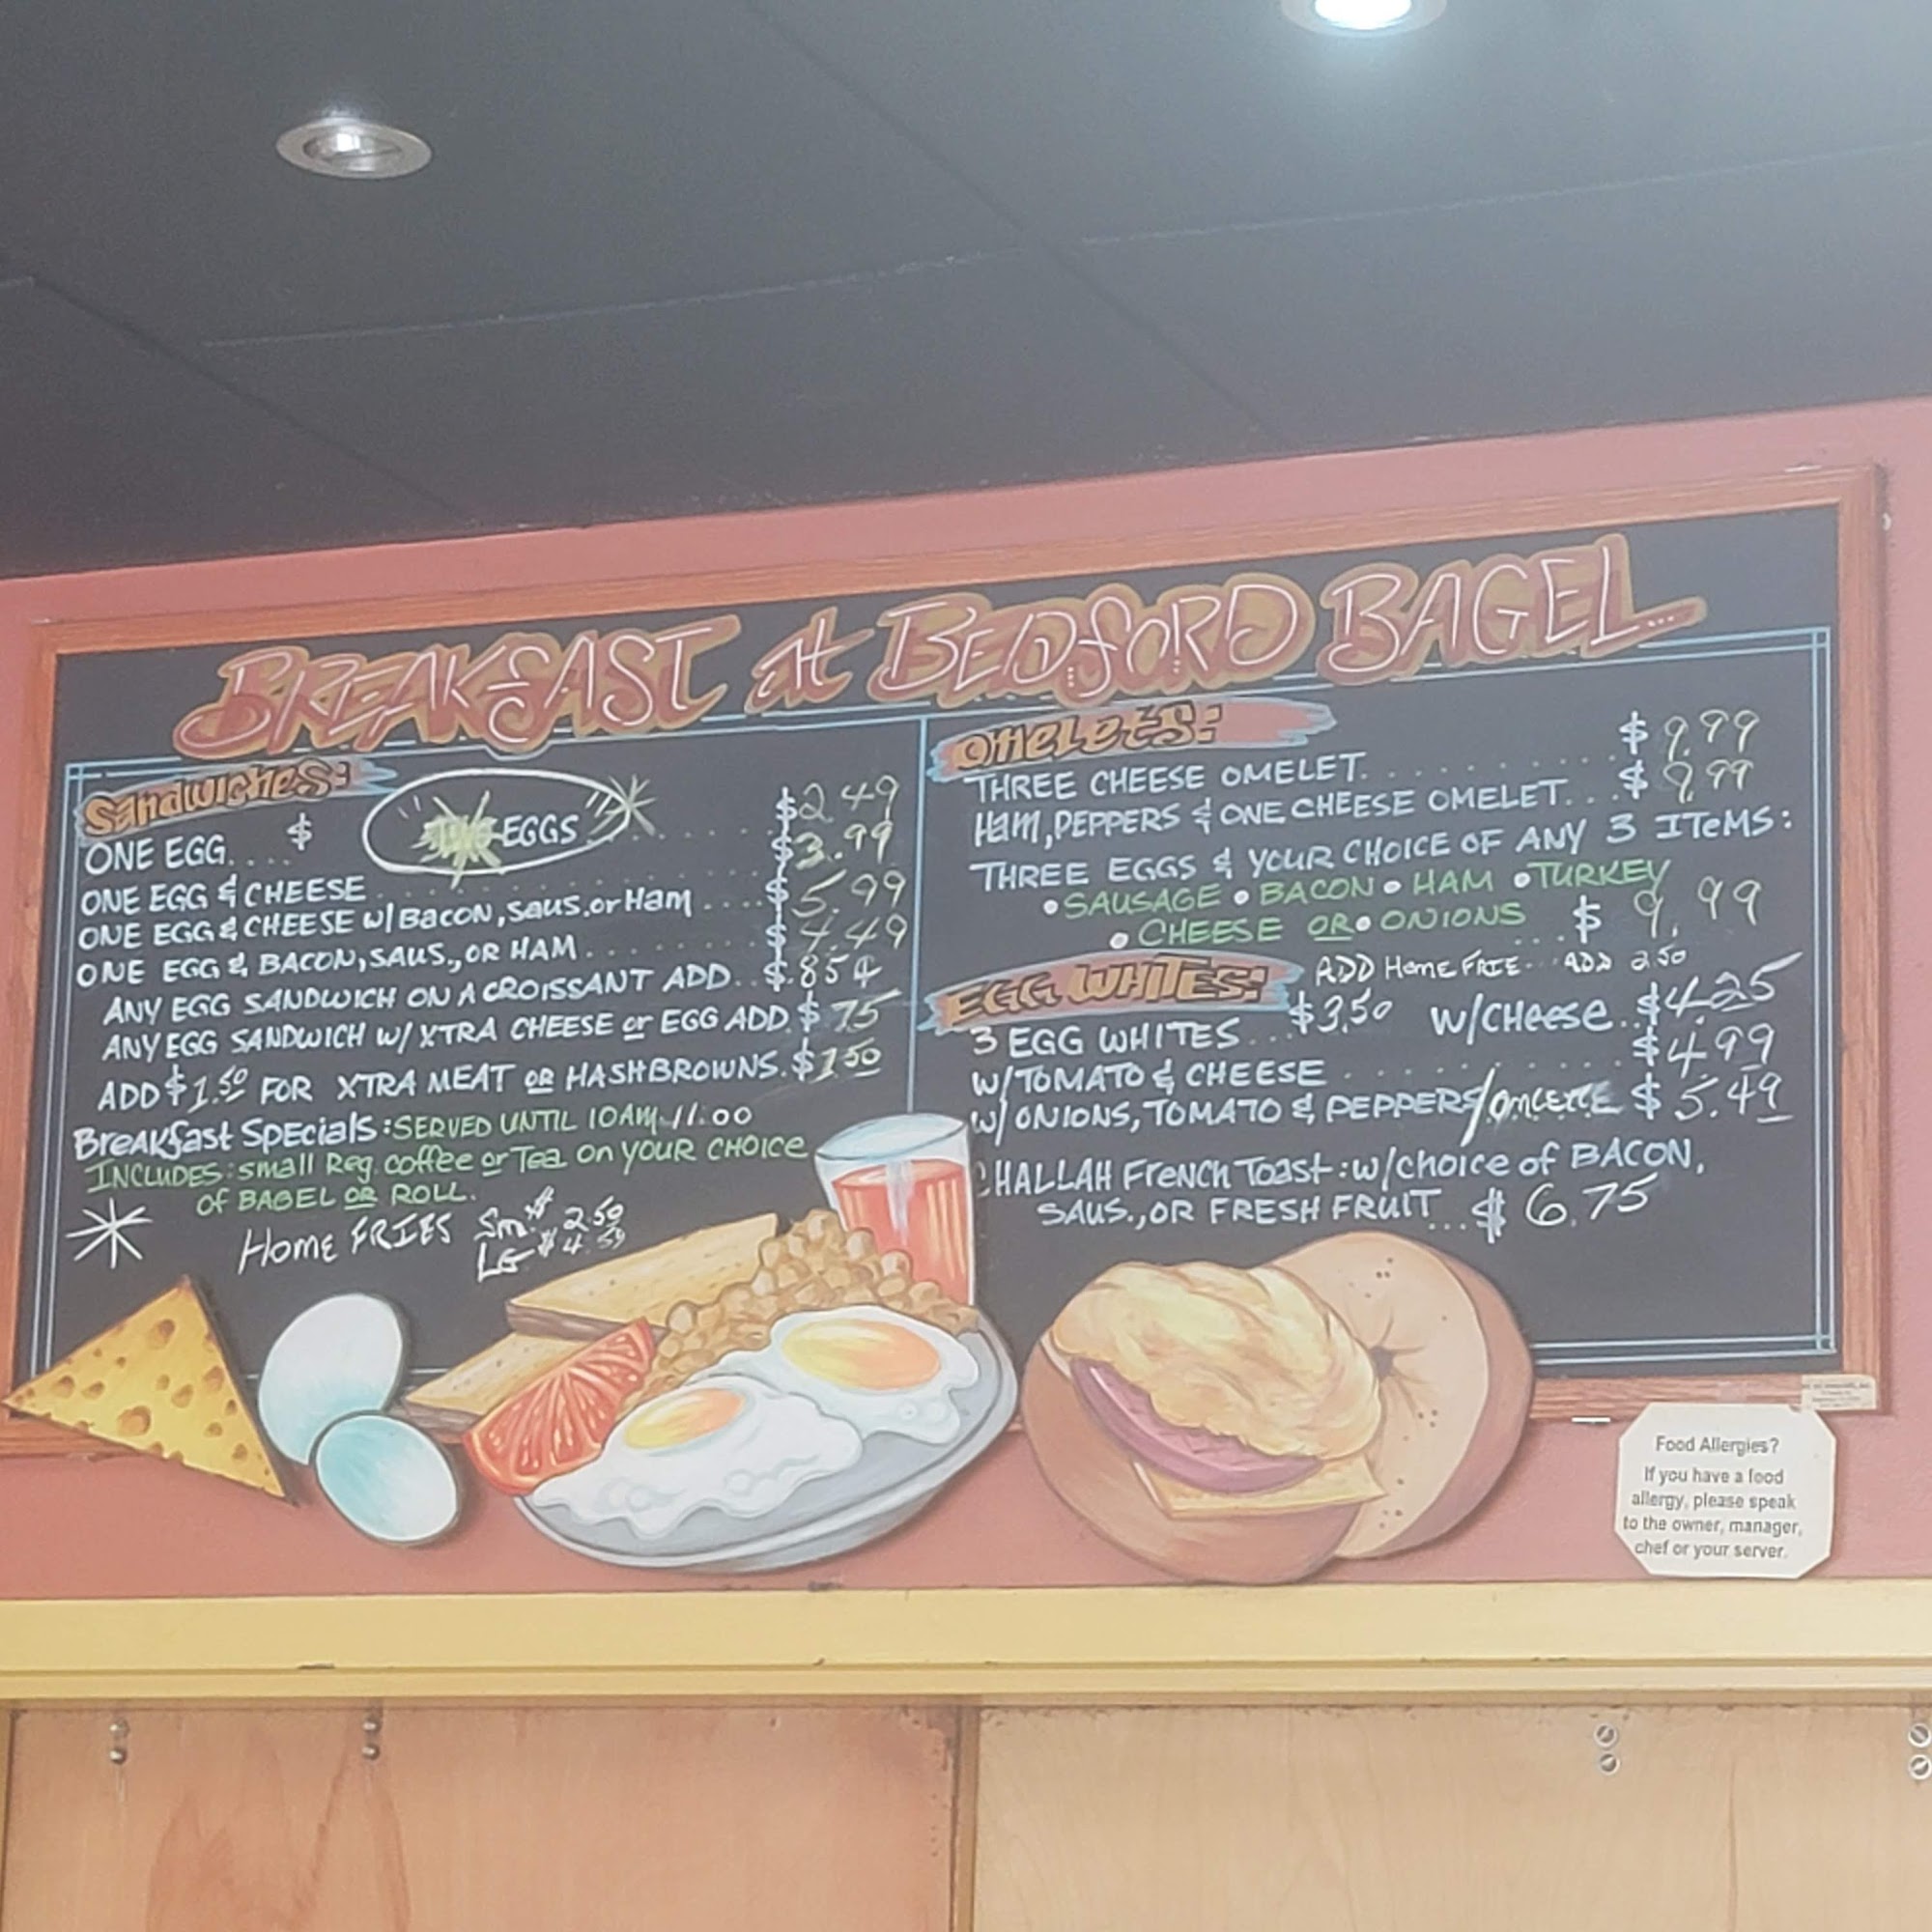 BREAKFAST at BEDFORD BAGEL...
Sandwiches:
ONE EGG.... $ EGGS ..... $2.49
ONE EGG & CHEESE .......... $3.99
ONE EGG & CHEESE W/BACON, SAUS. or Ham .... $5.99
ONE EGG & BACON, SAUS., OR HAM ........ $4.49
ANY EGG SANDWICH ON A CROISSANT ADD.. $.85¢
ANY EGG SANDWICH W/ XTRA CHEESE or EGG ADD. $ 75
ADD $1.50 FOR XTRA MEAT OR HASHBROWNS. $1.50
Breakfast Specials: SERVED UNTIL 10AM 11:00
INCLUDES: small Reg. coffee or Tea on YOUR CHOICE
OF BAGEL OR ROLL.
Home FRIES Sm. $ 2.50
LG $ 4.59
OMELETS:
THREE CHEESE OMELET.......... $ 9.99
Ham, PEPPERS & ONE CHEESE OMELET... $ 9.99
THREE EGGS & YOUR CHOICE OF ANY 3 ITEMS:
• SAUSAGE • BACON • HAM • TURKEY
• CHEESE OR • ONIONS .... $ 9.99
ADD Home FRIE... ADD 2.50
EGG WHITES:
3 EGG WHITES... $3.50 W/CHeese.. $4.25
W/TOMATO & CHEESE ............ $4.99
W/ONIONS, TOMATO & PEPPERS/OMLETTE $ 5.49
CHALLAH French Toast: w/choice of BACON,
SAUS., OR FRESH FRUIT... $ 6.75
Food Allergies?
If you have a food
allergy, please speak
to the owner, manager,
chef or your server.